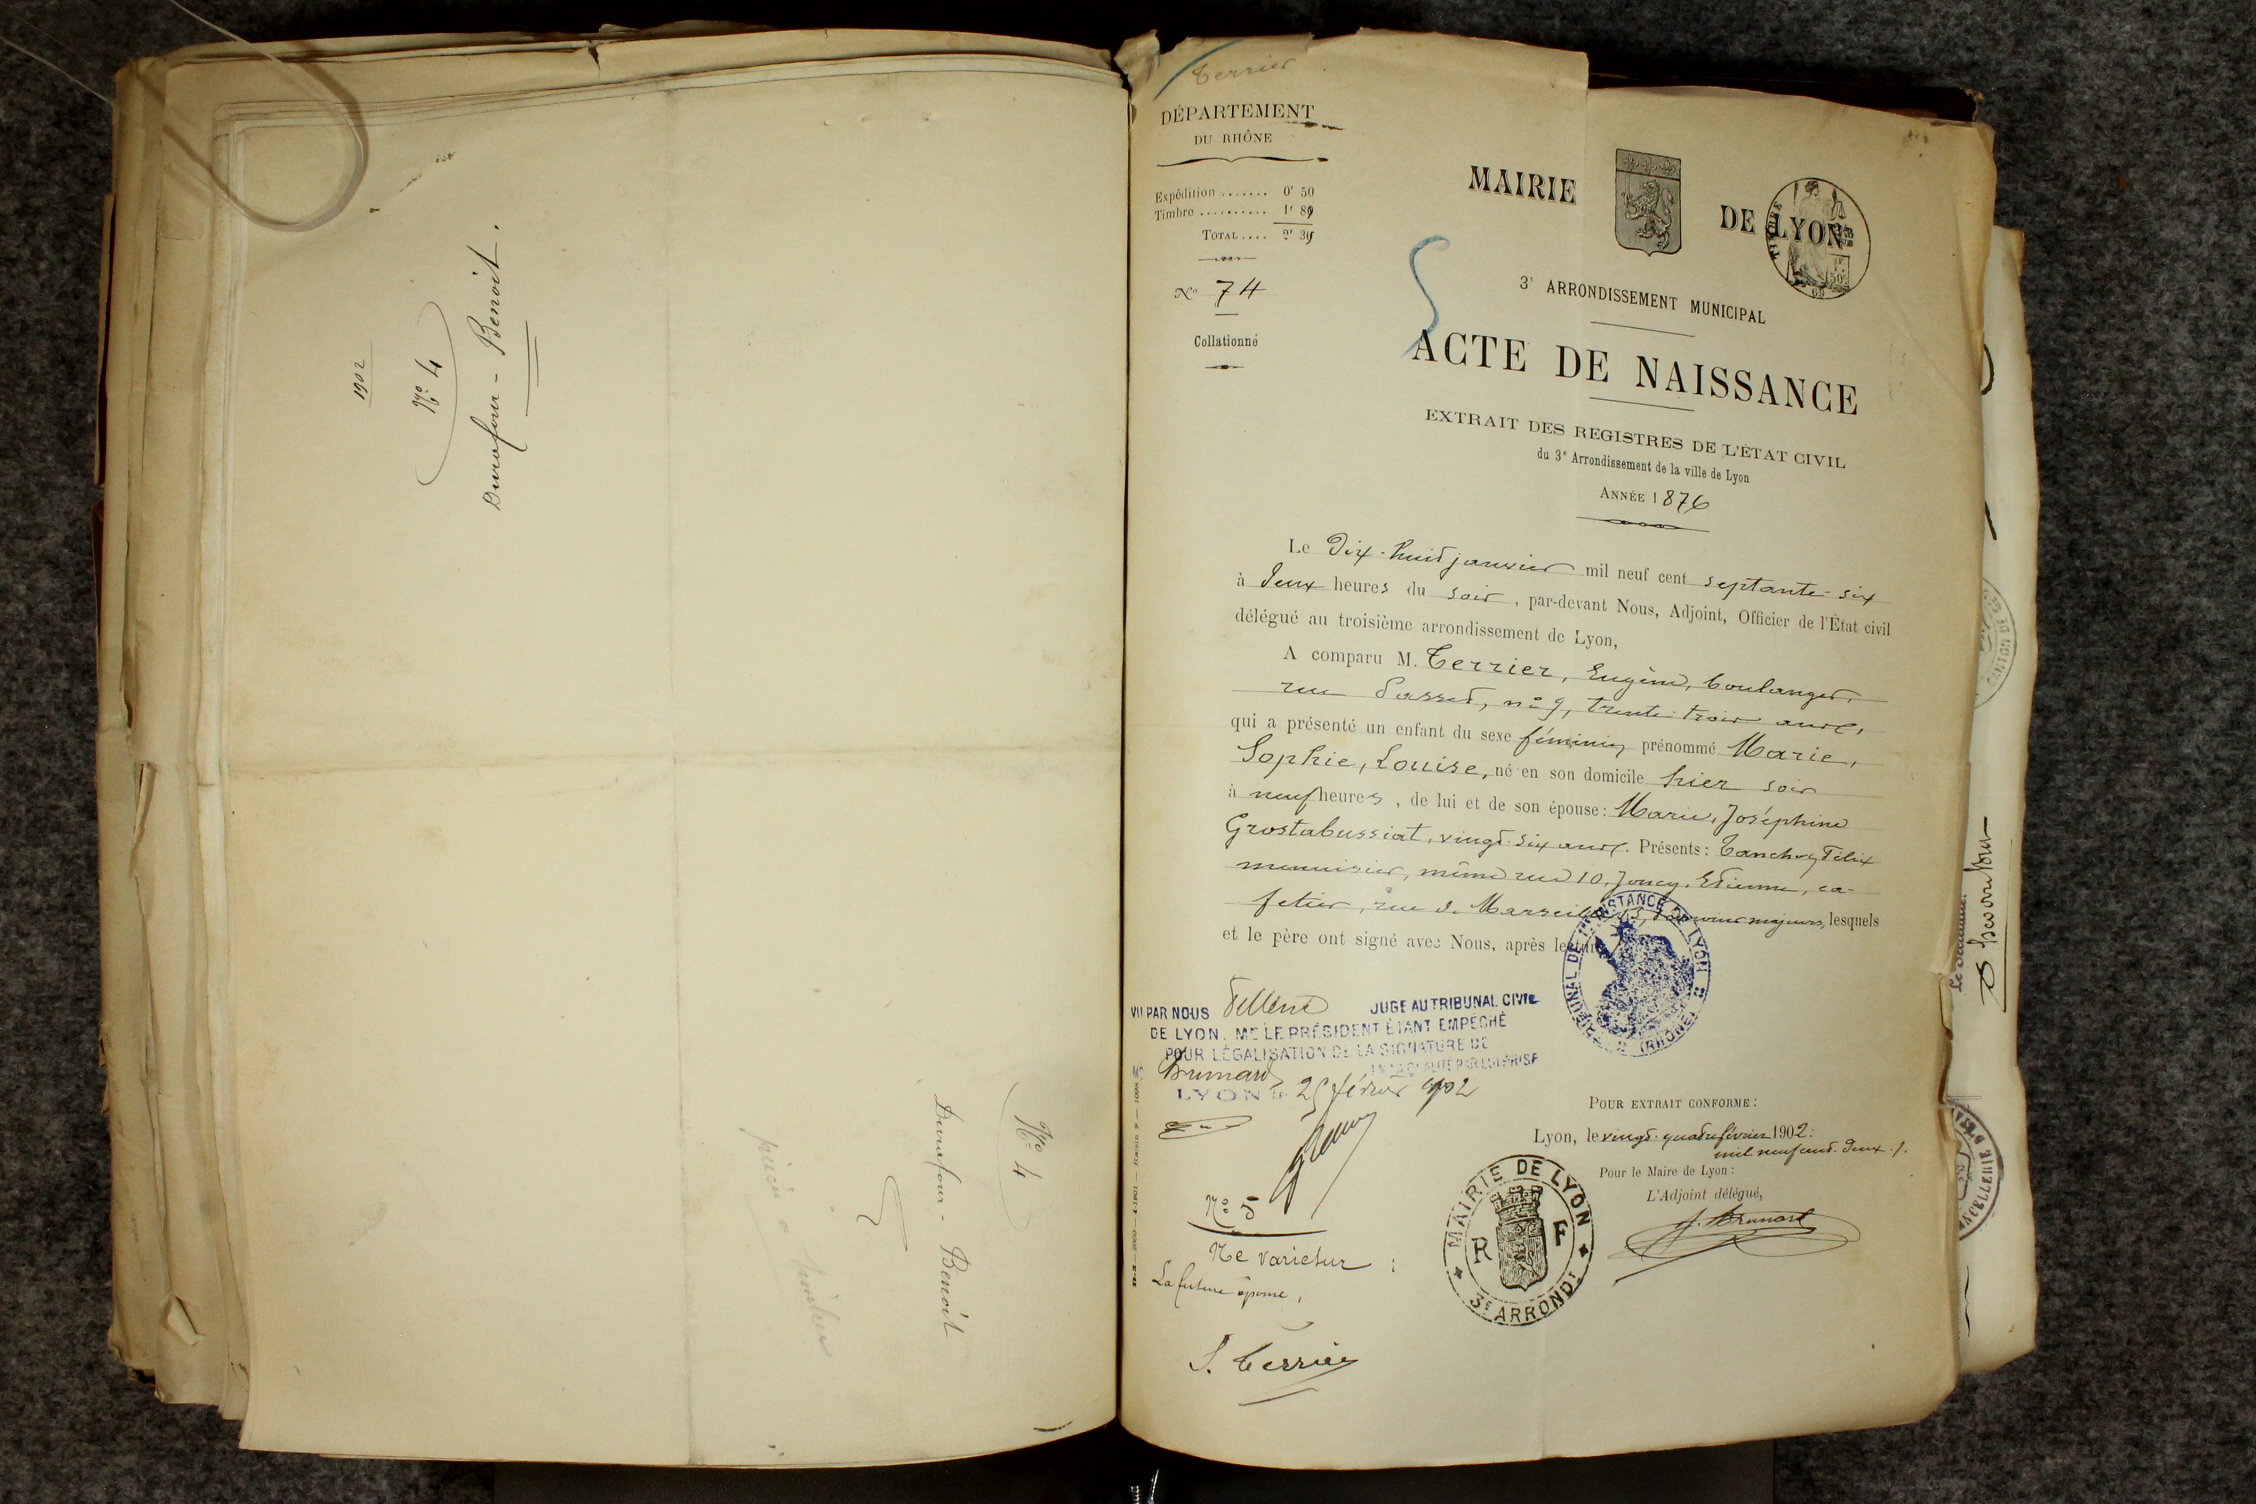 1902
Nº 4
Durafour - Benoit.
Nº 4
Durafour - Benoit
Terrier
DÉPARTEMENT
DU RHÔNE
Expédition ....... 0f 50
Timbre .......... 1f 80
TOTAL .... 2f 30
Nº 74
Collationné
MAIRIE DE LYON
3e ARRONDISSEMENT MUNICIPAL
ACTE DE NAISSANCE
EXTRAIT DES REGISTRES DE L'ÉTAT CIVIL
du 3e Arrondissement de la ville de Lyon
ANNÉE 1876
Le Dix-huit janvier mil neuf cent septante-six
à deux heures du soir, par-devant Nous, Adjoint, Officier de l'État civil
délégué au troisième arrondissement de Lyon,
A comparu M. Terrier, Eugène, boulanger,
rue Passet, nº 9, trente-trois ans,
qui a présenté un enfant du sexe féminin prénommé Marie,
Sophie, Louise, né en son domicile hier soir
à neuf heures, de lui et de son épouse: Marie, Joséphine
Grostabussiat, vingt-six ans. Présents: Félix
menuisier, même rue 10, Joucy, Etienne, ca-
fetier, rue de Marseille majeurs, lesquels
et le père ont signé avec Nous, après lecture
TRIBUNAL DE 1re INSTANCE DE LYON
(RHÔNE)
VU PAR NOUS JUGE AU TRIBUNAL CIVIL
DE LYON. MR LE PRÉSIDENT ÉTANT EMPÊCHÉ
POUR LÉGALISATION DE LA SIGNATURE DE
Brunard EN LA QUALITÉ PAR LUI PRISE
LYON le 25 février 1902
POUR EXTRAIT CONFORME:
Lyon, le vingt-quatre février 1902:
mil neuf cent deux ./.
Pour le Maire de Lyon:
L'Adjoint délégué,
J. Brunard
MAIRIE DE LYON
R F
3e ARRONDt
Nº 5
Ne varietur:
La future épouse,
S. Terrier